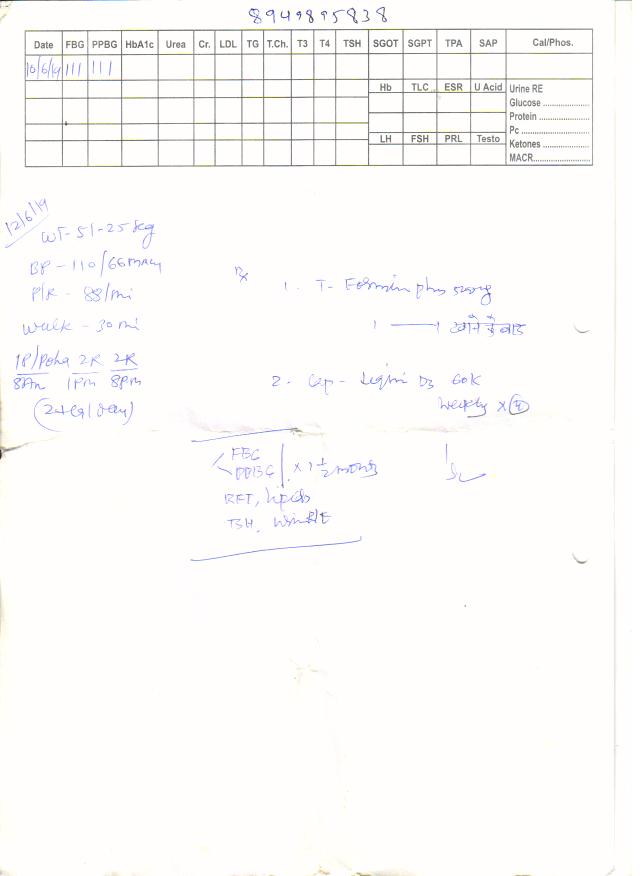 8949895838
Date FBG PPBG HbA1c Urea Cr. LDL TG T.Ch. T3 T4 TSH SGOT SGPT TPA SAP Cal/Phos.
10/6/19 111 111
Hb TLC ESR U Acid Urine RE
Glucose
Protein
Pc
LH FSH PRL Testo Ketones
MACR
12/6/19
WT - 51-25 kg
BP - 110/66
P/R - 88/mi
walk - 30 mi
1P/Poha 2R 2R
8Am 1Pm 8pm
Rx
1. T-
1 — 1 खाने के बाद
2. Cap - D3 60K
weekly x
FBG
PPBG x 1 1/2 month
RFT, lipids
TSH, urine R/E